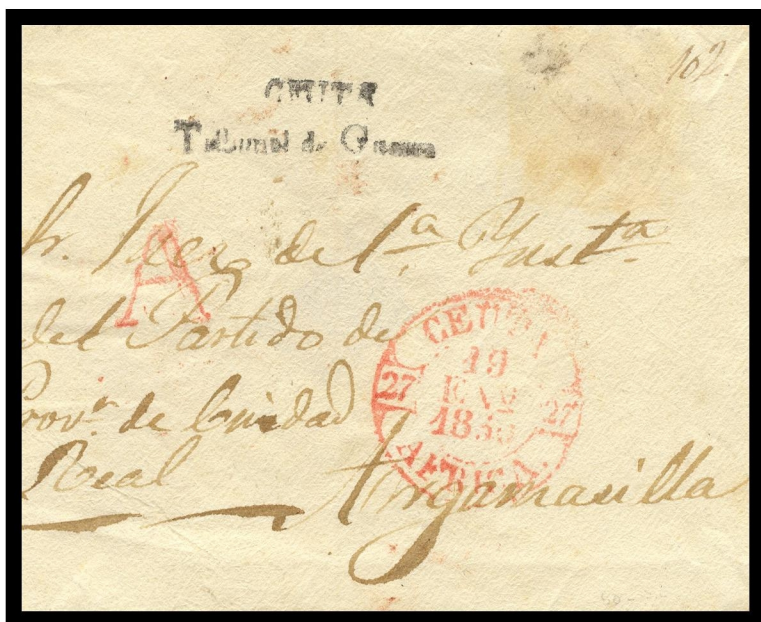 102.
CEUTA
Tribunal de Guerra
Sr. Juez de 1.ª Ynst.ª
A
del Partido de
CEUTA
19
ENE
27 27
AFRICA.
Prov.ª de Ciudad
Real Argamasilla